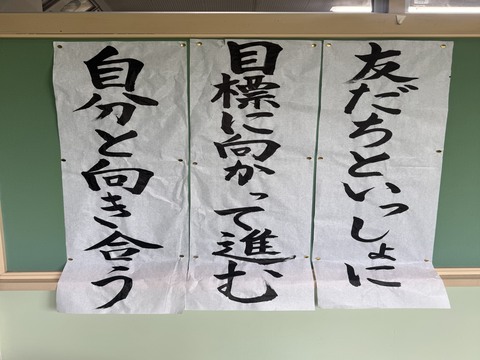 友だちといっしょに
目標に向かって進む
自分と向き合う